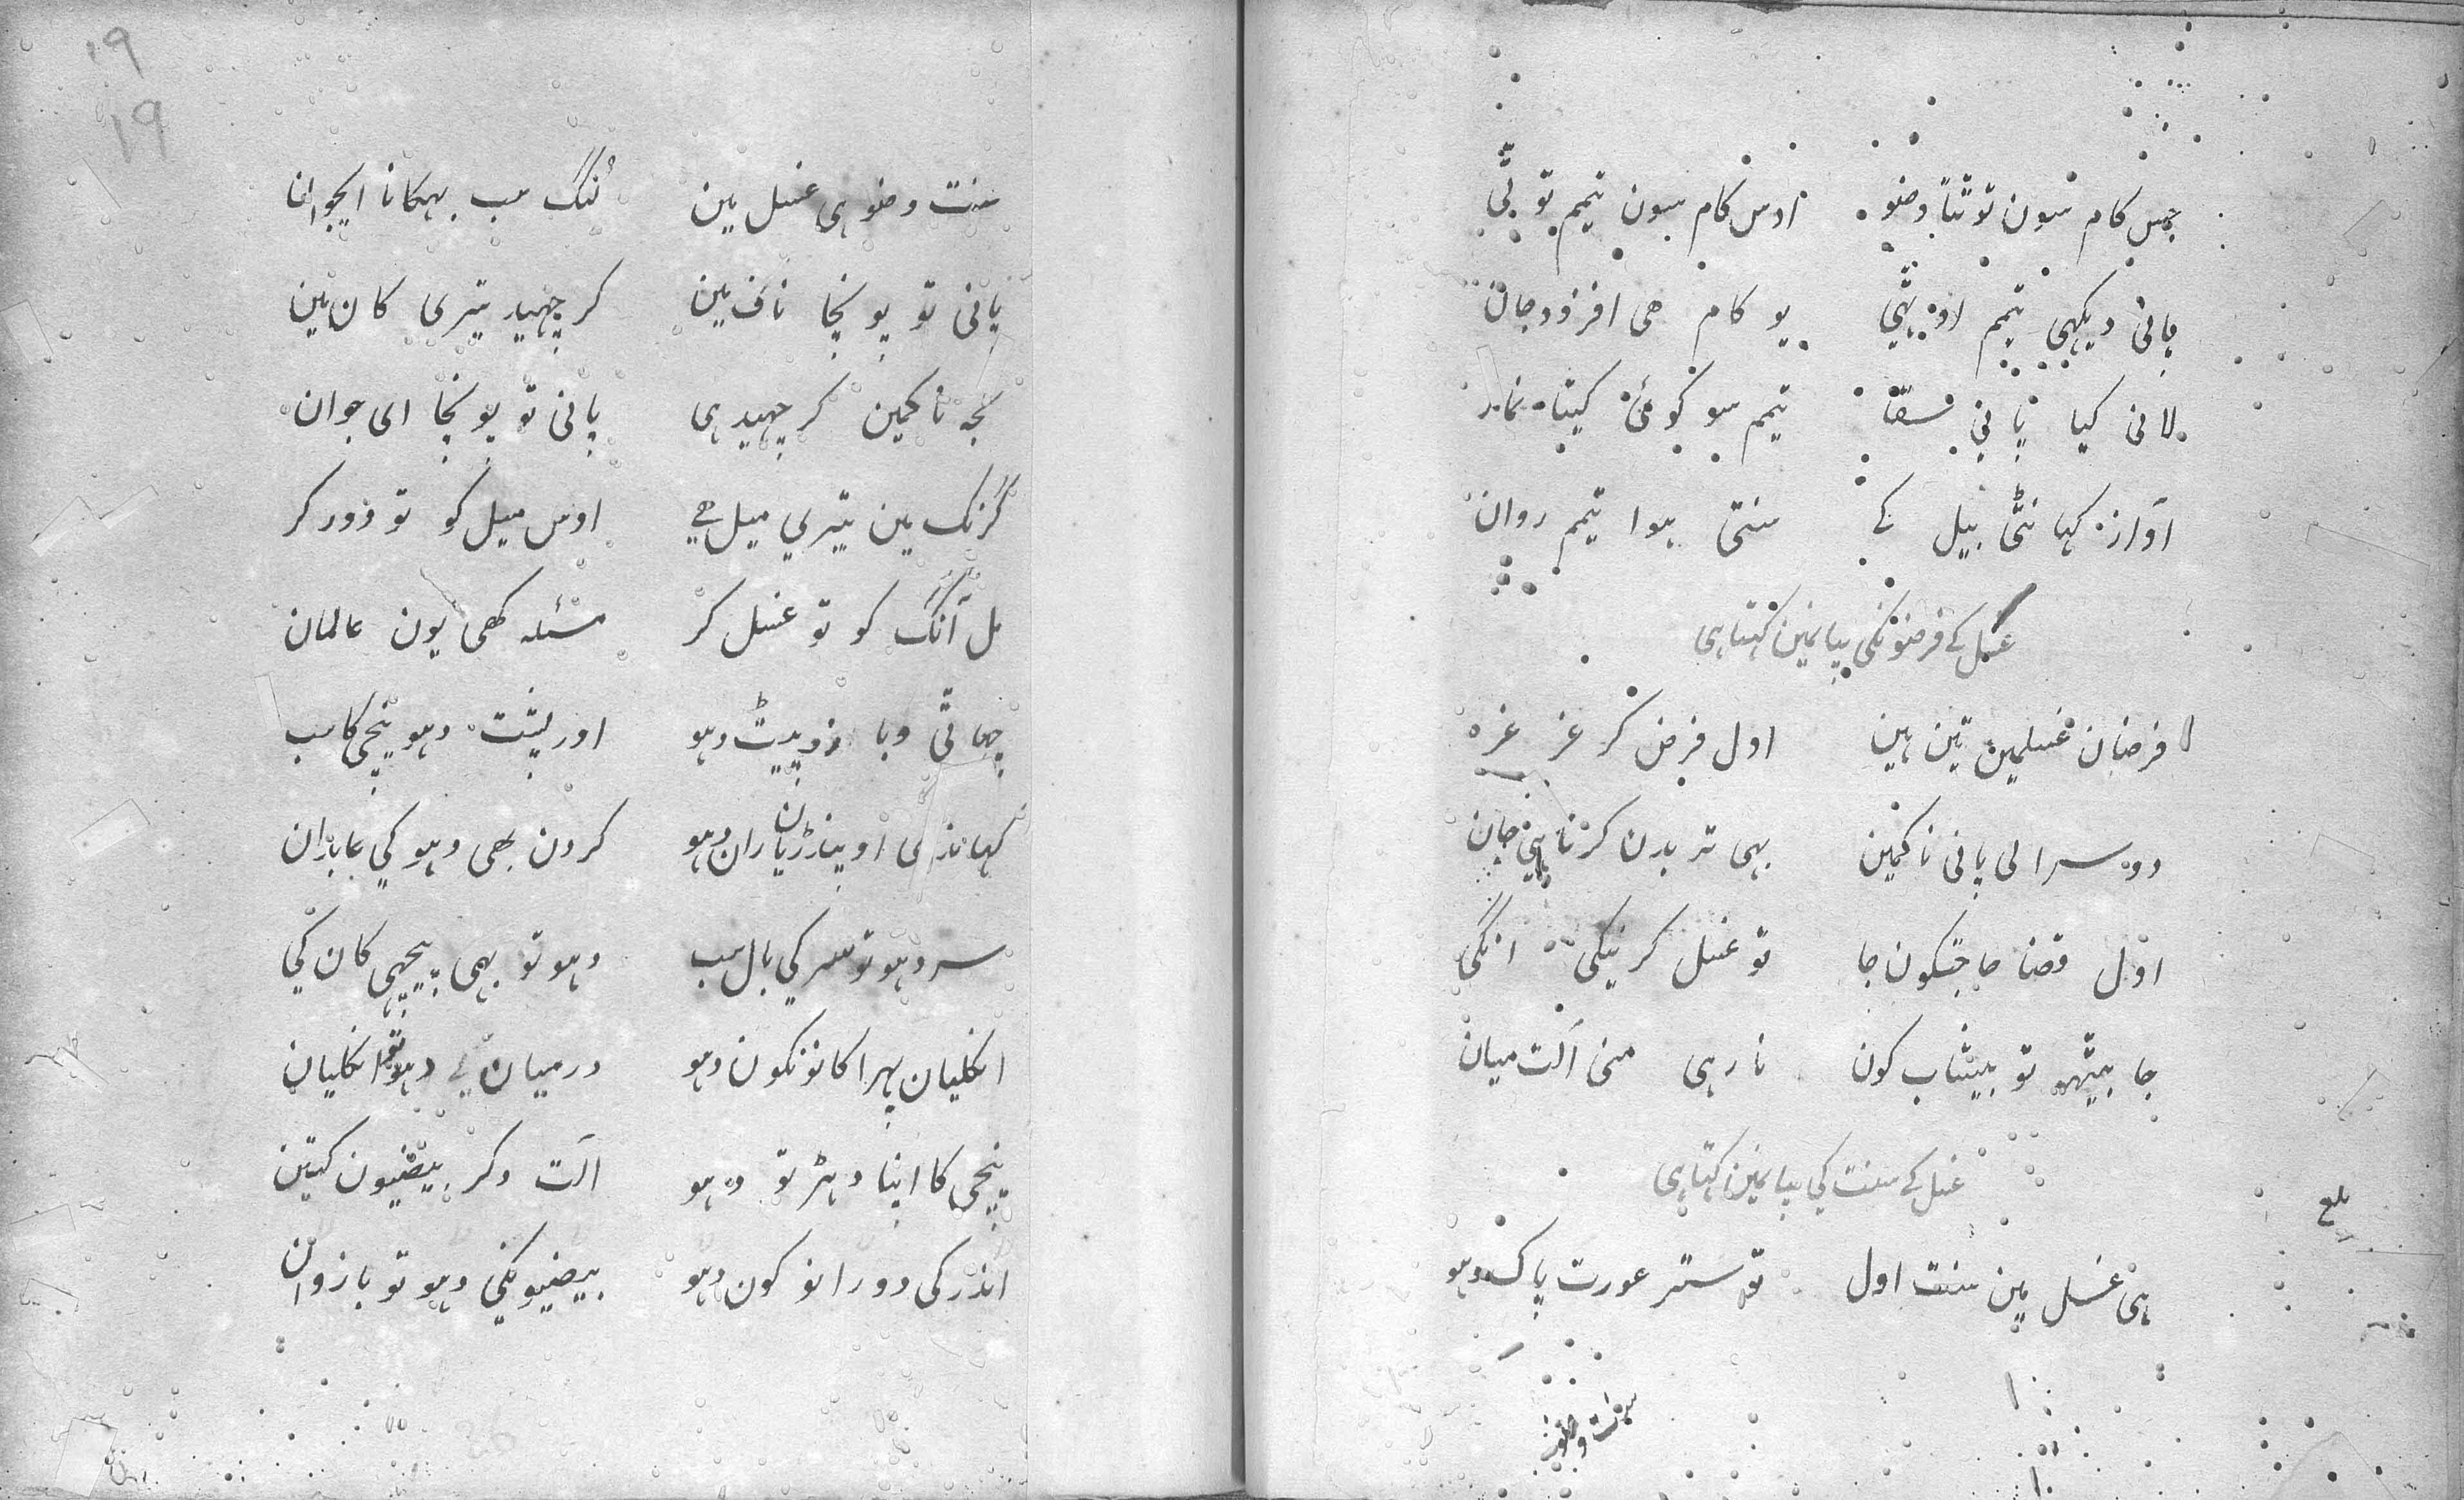 جس کام سون توٹتا وضو اوس کام سون تیمم توٹی
پانی دیکھی تیمم اوٹھی یو کام ھی افزود جان
لانی کیا پانی سقا تیمم سو کوئی کیتا نماز
آواز کہانٹی بیل کے سنتی ہوا تیمم روان
غسل کے فرضونکی بیانمین کہتا ہی
فرضان غسلمین تین ہین اول فرض کر غر غرہ
دوسرا لی پانی ناکمین بھی تر بدن کرنا جان
اول قضا حاجتکون جا تو غسل کر نیکی انگی
جا بیٹھہ تو پیشاب کون نا رہی منی آلت میان
غسل کے سنت کی بیانمین کہتا ہی
ہی غسل مین سنت اول تو ستر عورت پاک دہو
سنت وضو
۱۹
۱۹
سنت وضو ہی غسل مین لنگ سب بہکانا ایجوان
پانی تو پونچا ناف مین کر چھید تیری کان مین
تجہ ناکمین کر چھید ہی پانی تو پونچا ای جوان
گر انگ مین تیری میل ہے اوس میل کو تو دور کر
مل آنگ کو تو غسل کر مسئلہ کھی یون عالمان
چھاتی و بازو پیٹ دہو اور پشت دہو نیچی کا سب
اور پنڈریان ران دہو کردن بھی دہو کی
سر دہو تو سر کی بال سب دہو تو بھی پیچھی کان کی
انکلیان پھرا کانونکون دہو درمیان لے دہو تو انکلیان
نیچی کا اپنا دہڑ تو دہو آلت دکر بیضیون کیتین
اندر کی دو رانو کون دہو بیضیونکی دہو تو بازوان